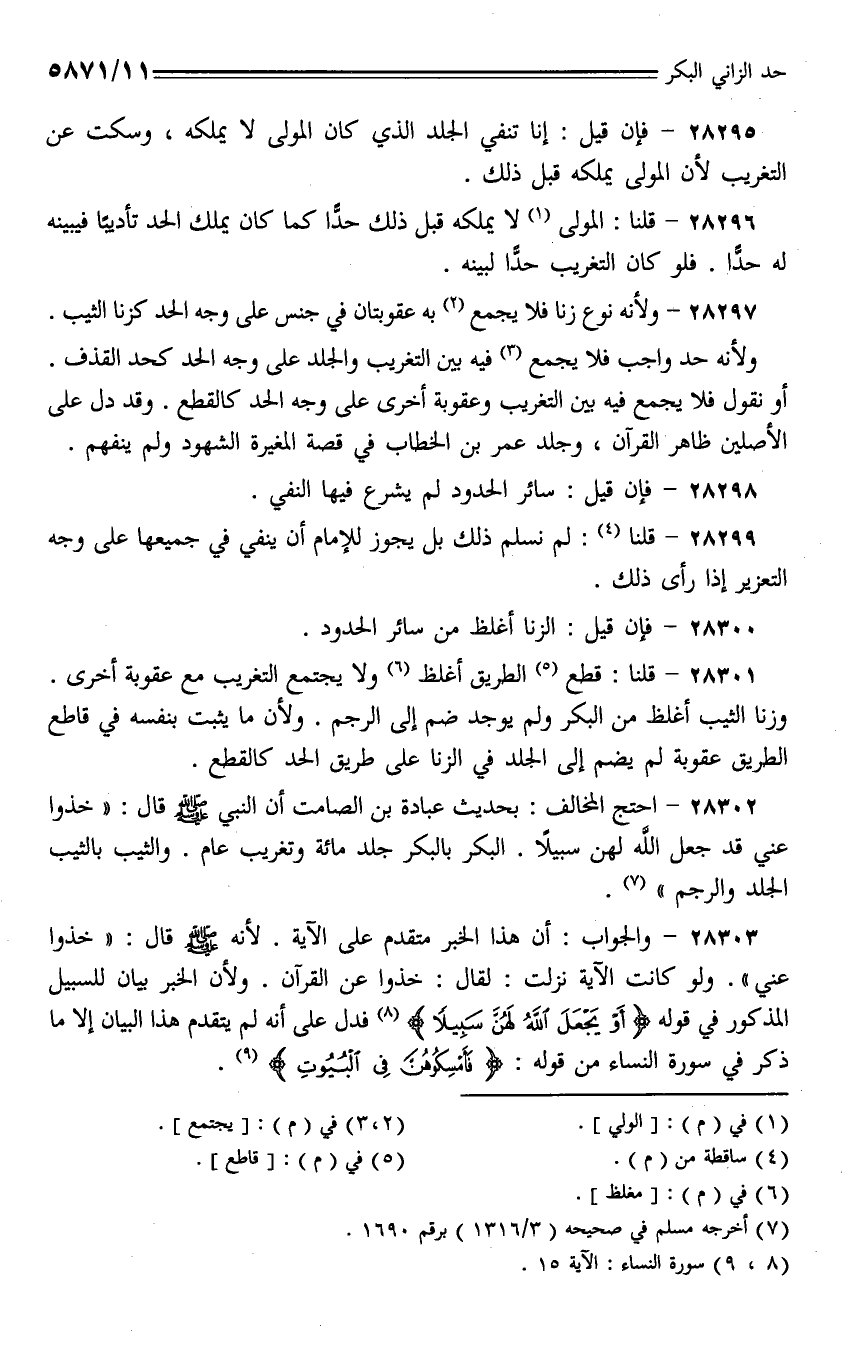 حد الزاني البكر ٥٨٧١/١١
٢٨٢٩٥ - فإن قيل : إنا تنفي الجلد الذي كان المولى لا يملكه ، وسكت عن
التغريب لأن المولى يملكه قبل ذلك .
٢٨٢٩٦ - قلنا : المولى (١) لا يملكه قبل ذلك حدًّا كما كان يملك الحد تأديبًا فيبينه
له حدًّا . فلو كان التغريب حدًّا لبينه .
٢٨٢٩٧ - ولأنه نوع زنا فلا يجمع (٢) به عقوبتان في جنس على وجه الحد كزنا الثيب .
ولأنه حد واجب فلا يجمع (٣) فيه بين التغريب والجلد على وجه الحد كحد القذف .
أو نقول فلا يجمع فيه بين التغريب وعقوبة أخرى على وجه الحد كالقطع . وقد دل على
الأصلين ظاهر القرآن ، وجلد عمر بن الخطاب في قصة المغيرة الشهود ولم ينفهم .
٢٨٢٩٨ - فإن قيل : سائر الحدود لم يشرع فيها النفي .
٢٨٢٩٩ - قلنا (٤) : لم نسلم ذلك بل يجوز للإمام أن ينفي في جميعها على وجه
التعزير إذا رأى ذلك .
٢٨٣٠٠ - فإن قيل : الزنا أغلظ من سائر الحدود .
٢٨٣٠١ - قلنا : قطع (٥) الطريق أغلظ (٦) ولا يجتمع التغريب مع عقوبة أخرى .
وزنا الثيب أغلظ من البكر ولم يوجد ضم إلى الرجم . ولأن ما يثبت بنفسه في قاطع
الطريق عقوبة لم يضم إلى الجلد في الزنا على طريق الحد كالقطع .
٢٨٣٠٢ - احتج المخالف : بحديث عبادة بن الصامت أن النبي ﷺ قال : « خذوا
عني قد جعل اللَّه لهن سبيلًا . البكر بالبكر جلد مائة وتغريب عام . والثيب بالثيب
الجلد والرجم » (٧) .
٢٨٣٠٣ - والجواب : أن هذا الخبر متقدم على الآية . لأنه ﷺ قال : « خذوا
عني» . ولو كانت الآية نزلت : لقال : خذوا عن القرآن . ولأن الخبر بيان للسبيل
المذكور في قوله ﴿ أَوْ يَجْعَلَ ٱللَّهُ لَهُنَّ سَبِيلًا ﴾ (٨) فدل على أنه لم يتقدم هذا البيان إلا ما
ذكر في سورة النساء من قوله : ﴿ فَأَمْسِكُوهُنَّ فِى ٱلْبُيُوتِ ﴾ (٩) .
(١) في ( م ) : [ الولي ] . (٣،٢) في ( م ) : [ يجتمع ] .
(٤) ساقطة من ( م ) . (٥) في ( م ) : [ قاطع ] .
(٦) في ( م ) : [ مغلظ ] .
(٧) أخرجه مسلم في صحيحه ( ١٣١٦/٣ ) برقم ١٦٩٠ .
(٨ ، ٩) سورة النساء : الآية ١٥ .